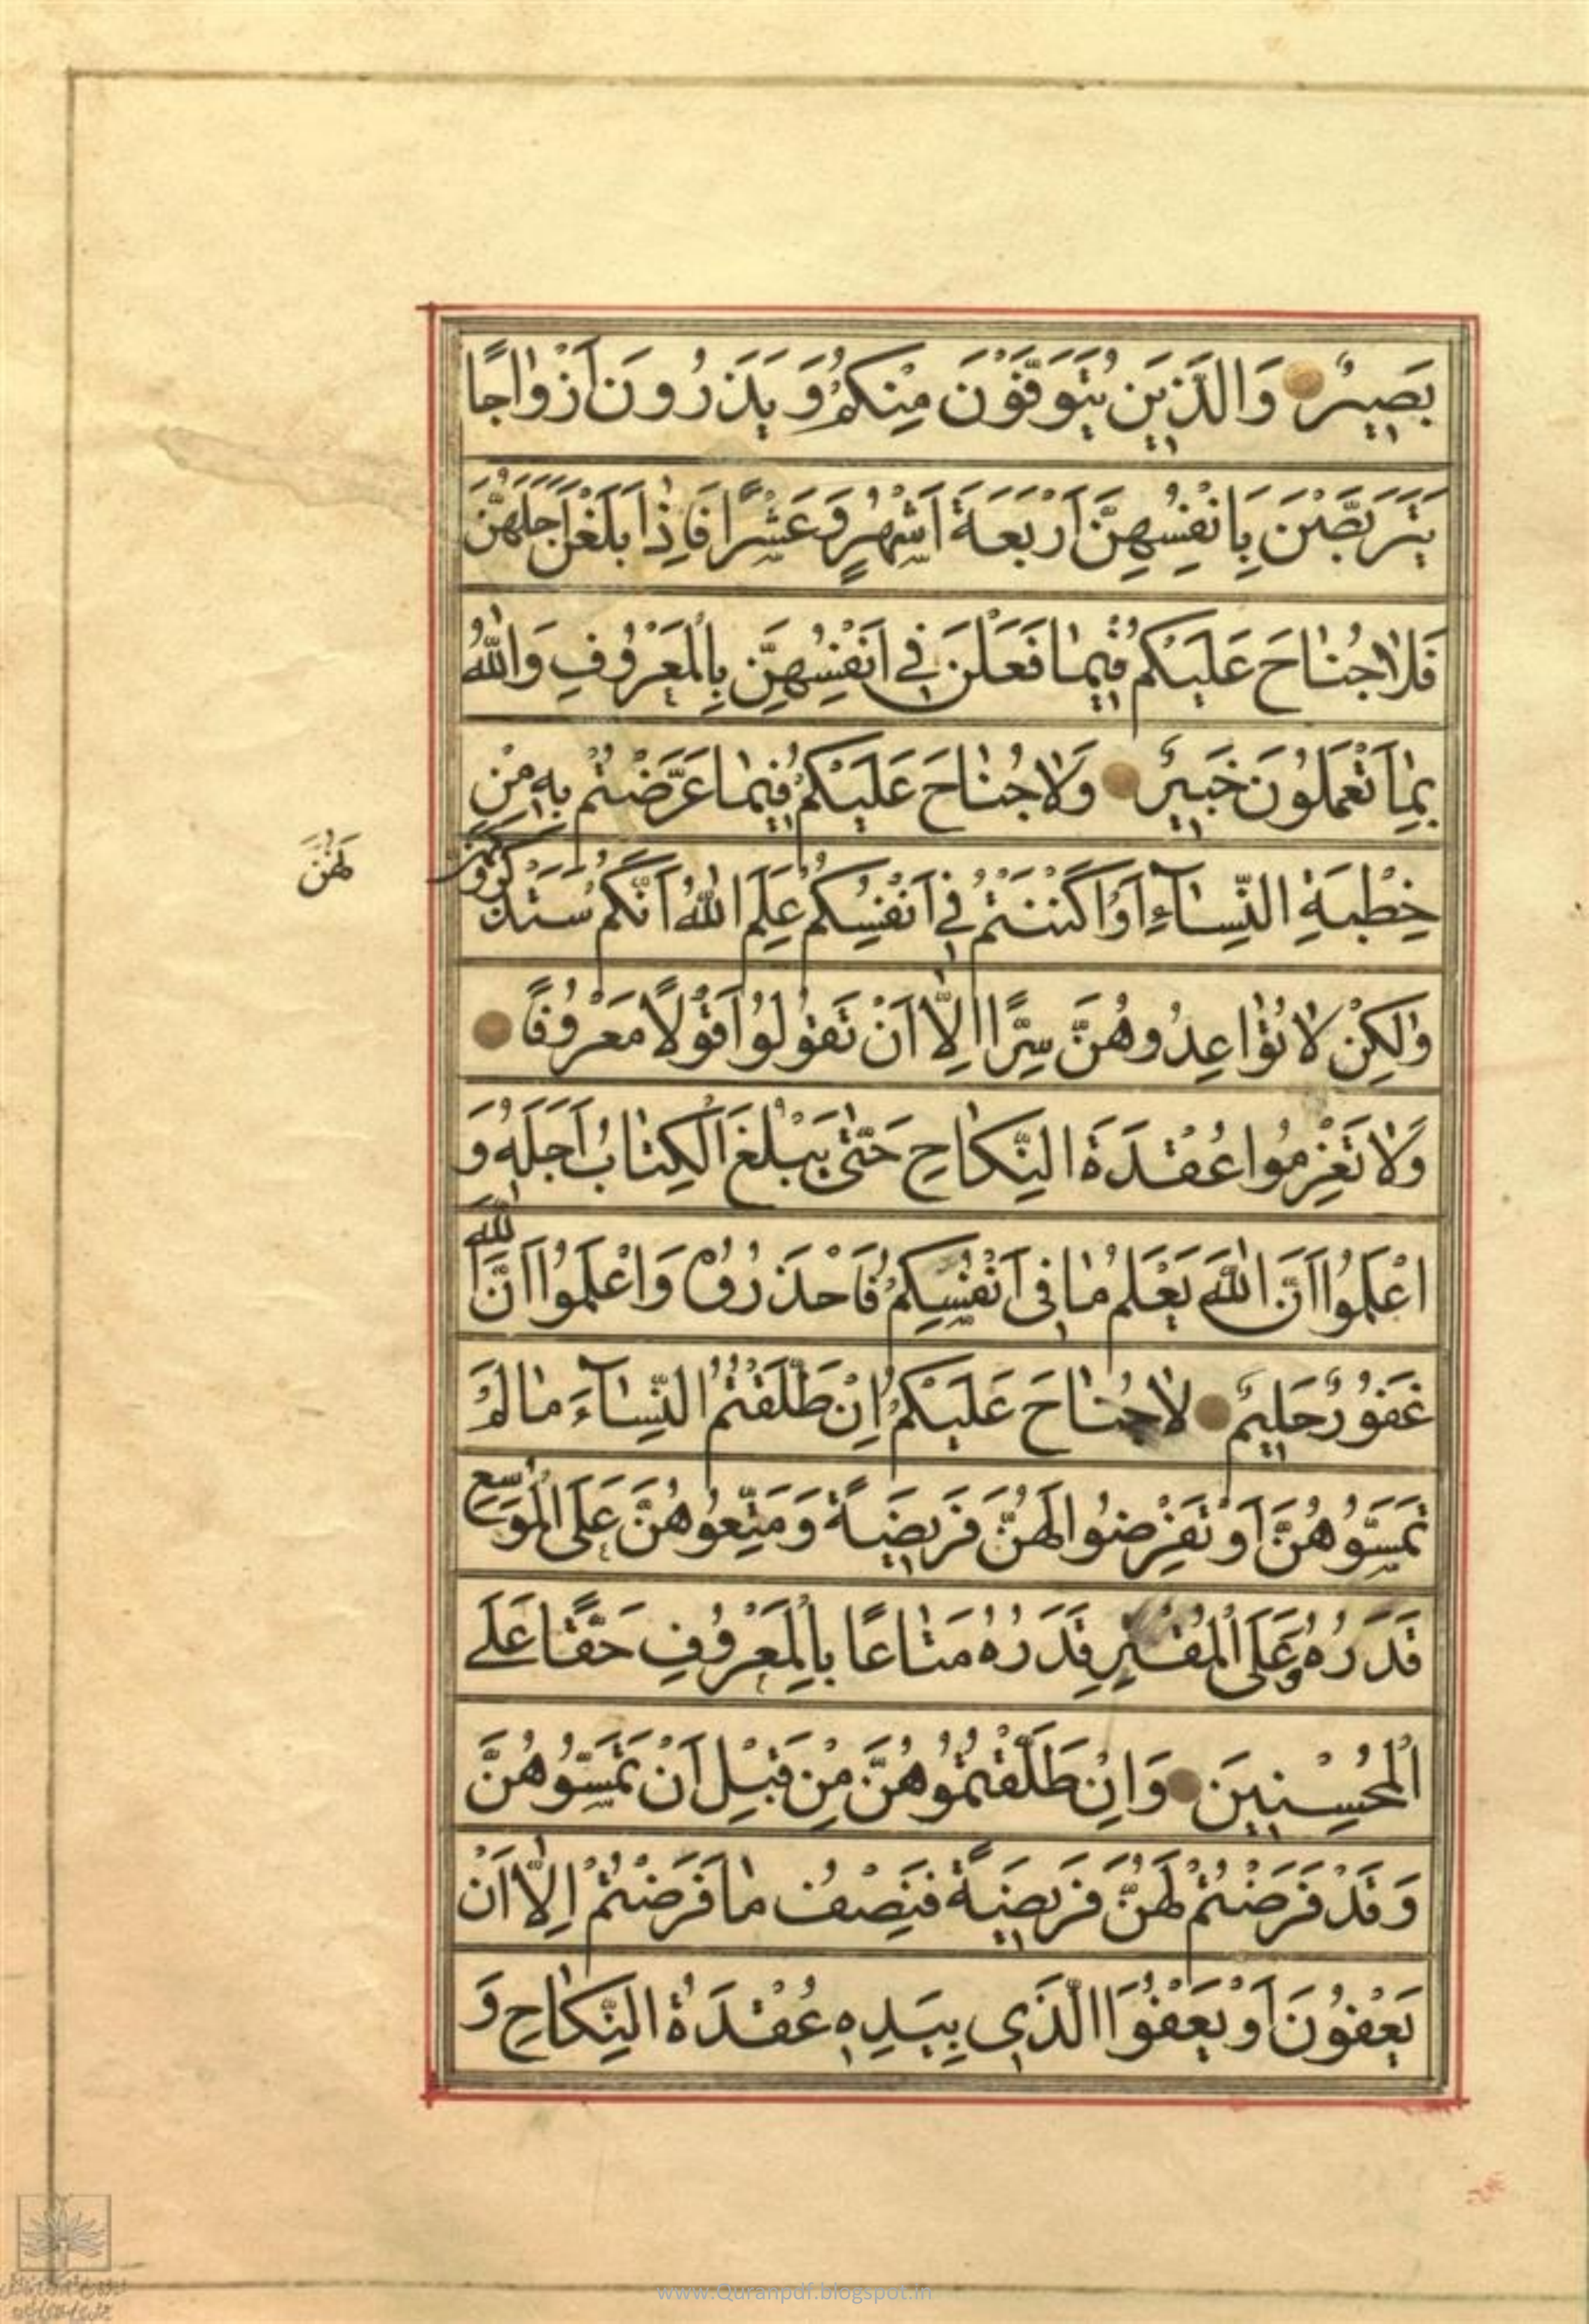 بَصِيرٌ وَالَّذِينَ يُتَوَفَّوْنَ مِنْكُمْ وَيَذَرُونَ أَزْوَاجًا
يَتَرَبَّصْنَ بِاَنْفُسِهِنَّ اَرْبَعَةَ اَشْهُرٍ وَعَشْرًا فَاِذٰا بَلَغْنَ اَجَلَهُنَّ
فَلاٰ جُنٰاحَ عَلَيْكُمْ فِيمٰا فَعَلْنَ فِي اَنْفُسِهِنَّ بِالْمَعْرُوفِ وَاللّٰهُ
بِمٰا تَعْمَلُونَ خَبِيرٌ وَلاٰ جُنٰاحَ عَلَيْكُمْ فِيمٰا عَرَّضْتُمْ بِهِ مِنْ
خِطْبَةِ النِّسٰآءِ اَوْ اَكْنَنْتُمْ فِي اَنْفُسِكُمْ عَلِمَ اللّٰهُ اَنَّكُمْ سَتَذْكُرُونَهُنَّ
لَهُنَّ
وَلٰكِنْ لاٰ تُوٰاعِدُوهُنَّ سِرًّا اِلاّٰ اَنْ تَقُولُوا قَوْلاً مَعْرُوفًا
وَلاٰ تَعْزِمُوا عُقْدَةَ النِّكٰاحِ حَتّٰى يَبْلُغَ الْكِتٰابُ اَجَلَهُ وَ
اعْلَمُوا اَنَّ اللّٰهَ يَعْلَمُ مٰا فِى اَنْفُسِكُمْ فَاحْذَرُوهُ وَاعْلَمُوا اَنَّ اللّٰهَ
غَفُورٌ حَلِيمٌ لاٰ جُنٰاحَ عَلَيْكُمْ اِنْ طَلَّقْتُمُ النِّسٰآءَ مٰا لَمْ
تَمَسُّوهُنَّ اَوْ تَفْرِضُوا لَهُنَّ فَرِيضَةً وَمَتِّعُوهُنَّ عَلَى الْمُوسِعِ
قَدَرُهُ وَعَلَى الْمُقْتِرِ قَدَرُهُ مَتٰاعًا بِالْمَعْرُوفِ حَقًّا عَلَى
الْمُحْسِنِينَ وَاِنْ طَلَّقْتُمُوهُنَّ مِنْ قَبْلِ اَنْ تَمَسُّوهُنَّ
وَقَدْ فَرَضْتُمْ لَهُنَّ فَرِيضَةً فَنِصْفُ مٰا فَرَضْتُمْ اِلاّٰ اَنْ
يَعْفُونَ اَوْ يَعْفُوَا الَّذِي بِيَدِهِ عُقْدَةُ النِّكٰاحِ وَ
www.Quranpdf.blogspot.in